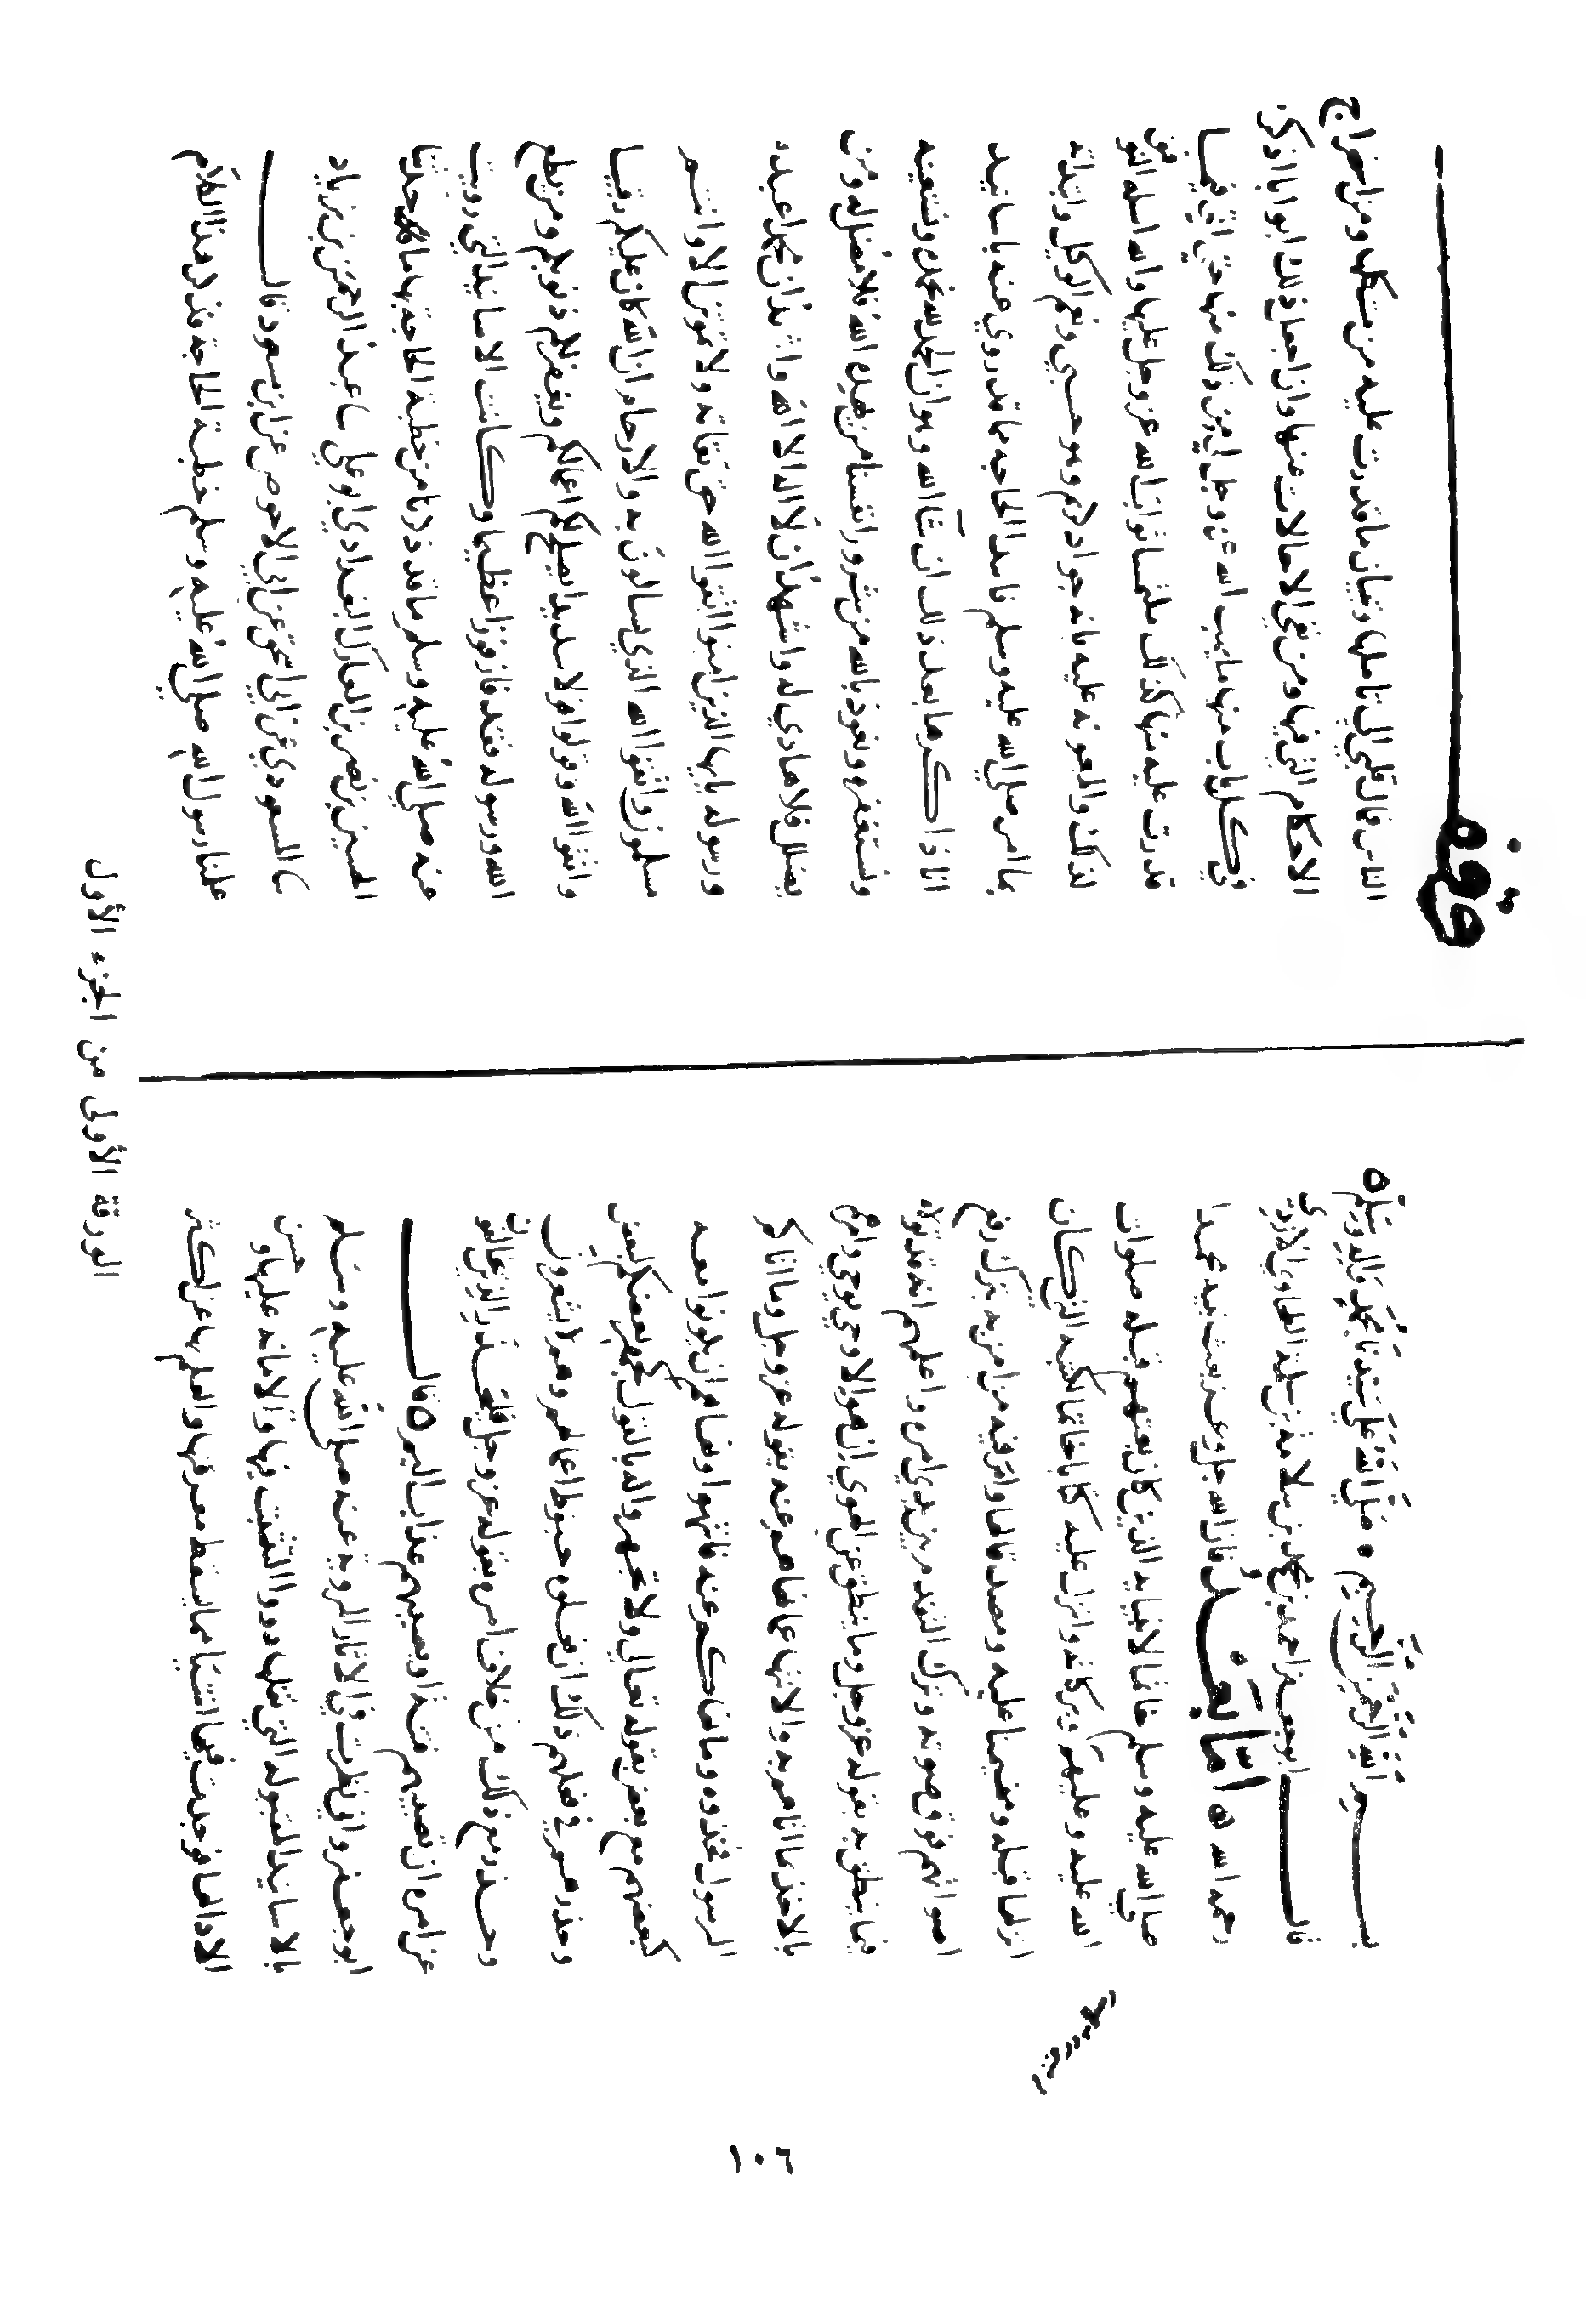 بسم الله الرحمن الرحيم ه صلي الله علي سيدنا محمد واله وسلم ه
قال ابو جعفر احمد بن محمد بن سلامة بن سلمة الطحاوي الازدي
رحمه الله ه اما بعد فان الله جل وعز بعث نبيه محمدا
صلي الله عليه وسلم خاتما لانبيايه الذين كان بعثهم قبله صلوات
الله عليه وعليهم وبركاته وانزل عليه كتابا خاتما لكتبه التي كان
انزلها قبله ومهيمنا عليها ومصدقا لها وامر فيه من امن به بترك رفع
اصواتهم فوق صوته وترك التقدم بين يدي امره واعلمهم انه قد تولاه
فيما ينطق به بقوله عز وجل وما ينطق عن الهوي ان هو الا وحي يوحي وامرهم
بالاخذ بما اتاهم به والانتها عما نهاهم عنه بقوله عز وجل وما اتاكم
الرسول فخذوه وما نهاكم عنه فانتهوا ونهاهم ان يكونوا معه
كبعضهم مع بعض بقوله تعالي ولا تجهروا له بالقول كجهر بعضكم لبعض
وحذرهم في فعلهم ذلك ان فعلوه حبوط اعمالهم وهم لا يشعرون
وحذر مع ذلك من خلاف امره بقوله عز وجل فليحذر الذين يخالفون
عن امره ان تصيبهم فتنة او يصيبهم عذاب اليم ه قال
ابو جعفر واني نظرت في الاثار المروية عنه صلي الله عليه وسلم
بالاسانيد المقبولة التي نقلها ذووا التثبت فيها والامانة عليها وحسن
الادا لها فوجدت فيها اشيا مما يسقط معرفتها والعلم بها عن اكثر
وقف
الناس فمال قلبي الي تاملها وتبيان ما قدرت عليه من مشكلها ومن استخراج
الاحكام التي فيها ومن نفي الاحالات عنها وان اجعل ذلك ابوابا اذكر
في كل باب منها ما يهب الله عز وجل لي من ذلك منها حتي اتي فيما
قدرت عليه منها كذلك ملتمسا ثواب الله عز وجل عليها والله اسله التوفيق
لذلك والمعونة عليه فانه جواد كريم وهو حسبي ونعم الوكيل وابتداته
بما امر صلي الله عليه وسلم بابتدا الحاجه مما قد روي عنه باسانيد
انا ذاكرها بعد ذلك ان شآ الله وهو ان الحمد لله نحمده ونستعينه
ونستغفره ونعوذ بالله من شرور انفسنا من يهده الله فلا مضل له ومن
يضلل فلا هادي له واشهد ان لا اله الا الله واشهد ان محمدا عبده
ورسوله يايها الذين امنوا اتقوا الله حق تقاته ولا تموتن الا وانتم
مسلمون واتقوا الله الذي تسالون به والارحام ان الله كان عليكم رقيبا
واتقوا الله وقولوا قولا سديدا يصلح لكم اعمالكم ويغفر لكم ذنوبكم ومن يطع
الله ورسوله فقد فاز فوزا عظيما وكانت الاسانيد التي رويت
عنه صلي الله عليه وسلم ما قد ذكرنا من خطبة الحاجة بها ما حدثنا
الحسين بن نصر بن المعارك البغدادي ابو علي سا عبد الرحمن بن زياد
سا المسعودي عن ابي اسحق عن ابي الاحوص عن ابن مسعود قال
علمنا رسول الله صلي الله عليه وسلم خطبة الحاجة فذكر هذا الكلام
الورقة الأولى من الجزء الأول
١٠٦